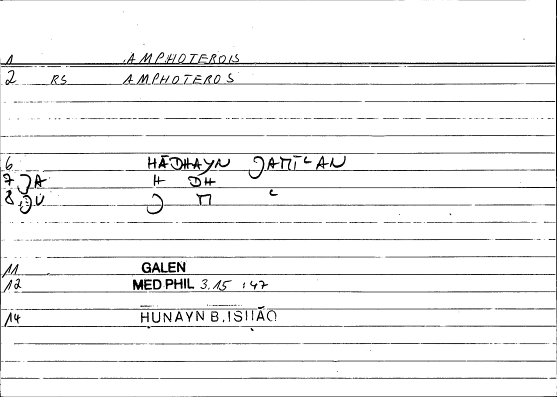 1 AMPHOTEROIS
2 RS AMPHOTEROS
6 HĀDHAYN JAMĪʿAN
7 JA H DH
8 JU J M ʿ
11 GALEN
12 MED PHIL 3.15 :47
14 HUNAYN B.ISHĀQ